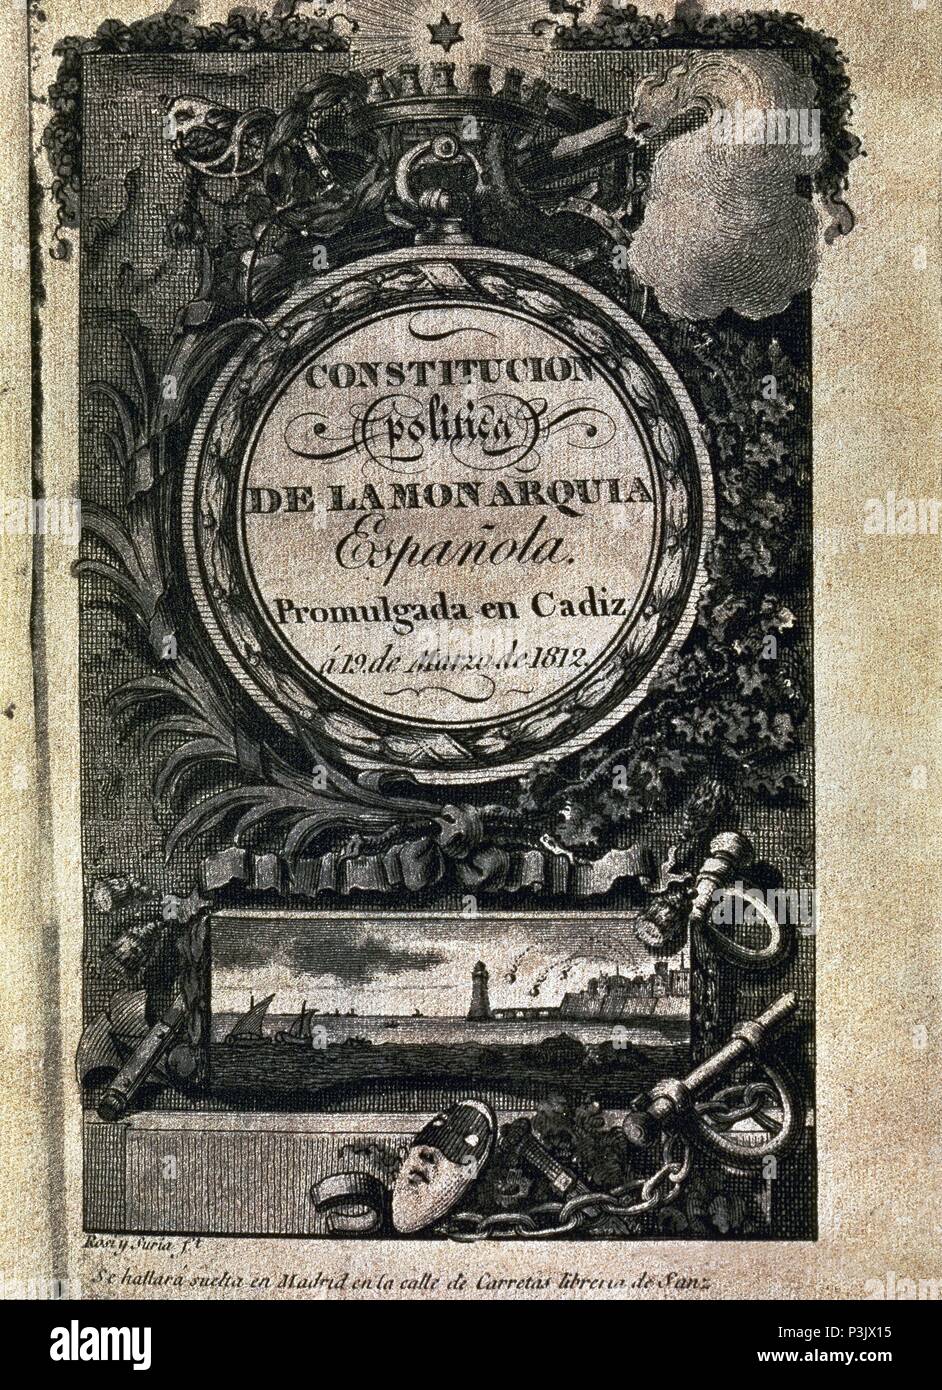 CONSTITUCION
politica
DE LA MONARQUIA
Española.
Promulgada en Cadiz
á 19. de Marzo de 1812.
Rosi y Suria f.t
Se hallará suelta en Madrid en la calle de Carretas libreria de Sanz
alamy
Image ID: P3JX15
www.alamy.com